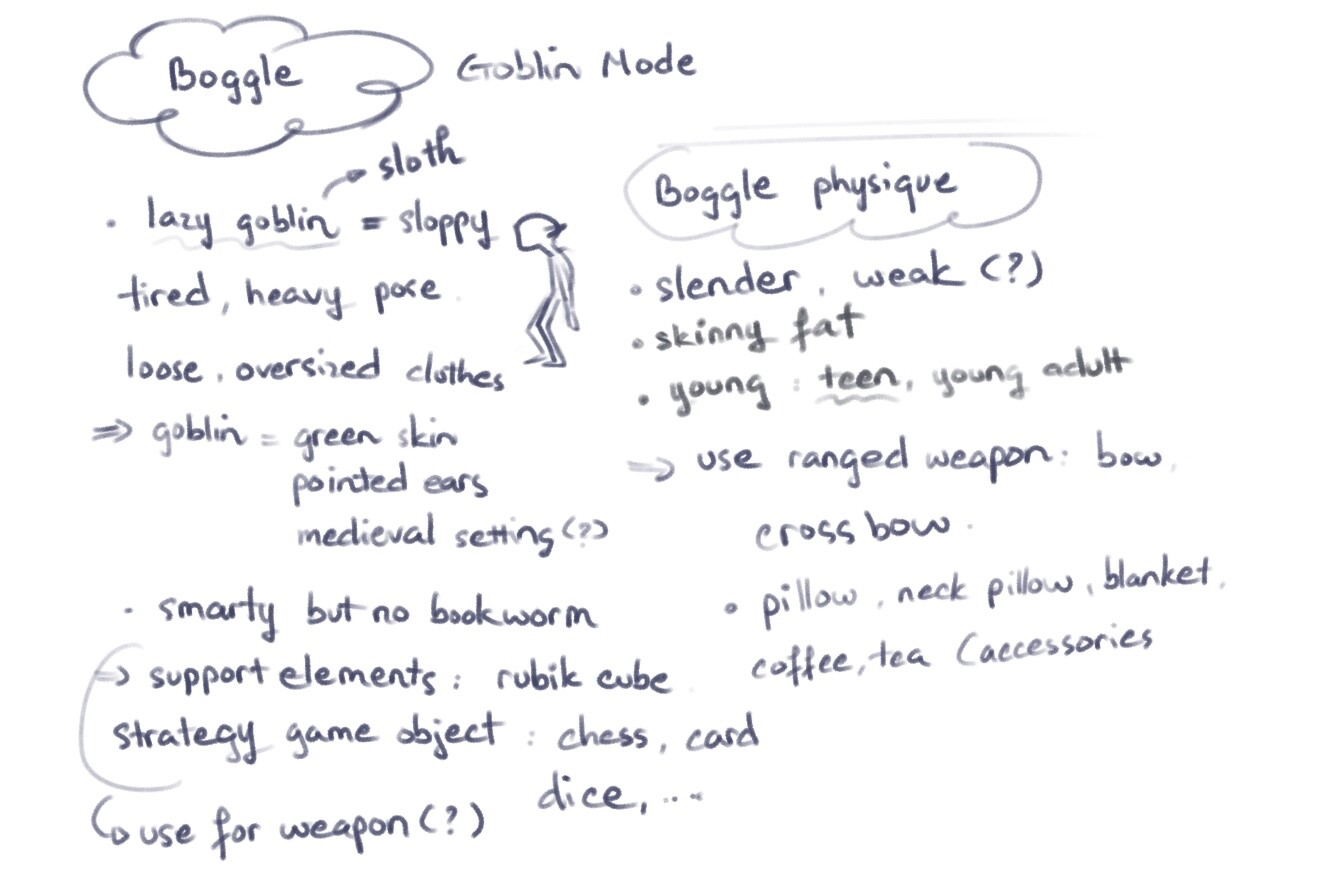 Boggle Goblin Mode
sloth
• lazy goblin = sloppy
tired, heavy pose
loose, oversized clothes
⇒ goblin = green skin
pointed ears
medieval setting (?)
• smarty but no bookworm
→ support elements : rubik cube
strategy game object : chess, card
dice, ...
↳ use for weapon (?)
Boggle physique
• slender, weak (?)
• skinny fat
• young : teen, young adult
⇒ use ranged weapon: bow,
cross bow.
• pillow, neck pillow, blanket,
coffee, tea (accessories